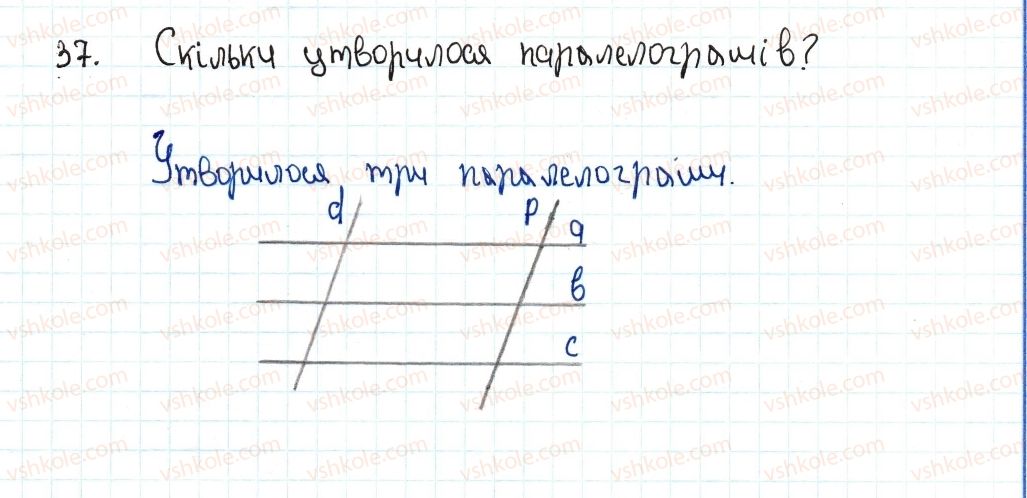 37. Скільки утворилося паралелограмів?
Утворилося три паралелограми.
d p a
в
c
vshkole.com